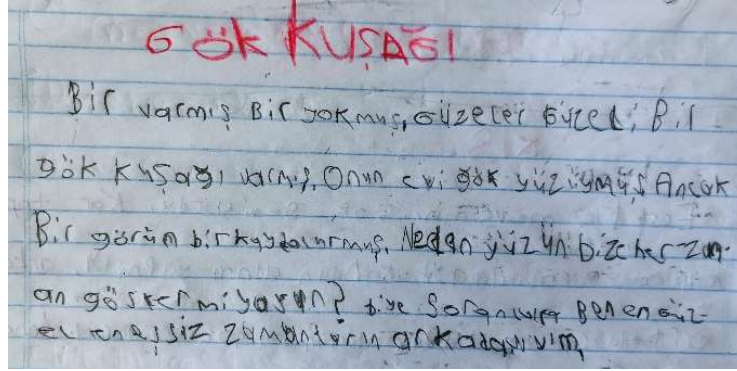 GÖK KUŞAĞI
Bir varmış Bir yokmuş, Güzeller güzeli, Bir
gök kuşağı varmış. Onun evi gök yüzüymüş Ancak
Bir görün bir kaybolurmuş. Neden yüzün bize her zam-
an göstermiyorsun? diye soranlara Ben en güz-
el en eşsiz zamanların arkadaşıyım,